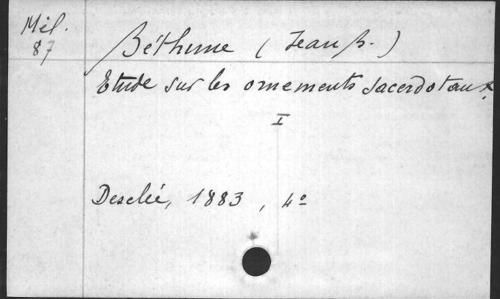 Mél.
87
Béthune (Jean B.)
Etude sur les ornements sacerdotaux.
I
Desclée, 1883, 4º